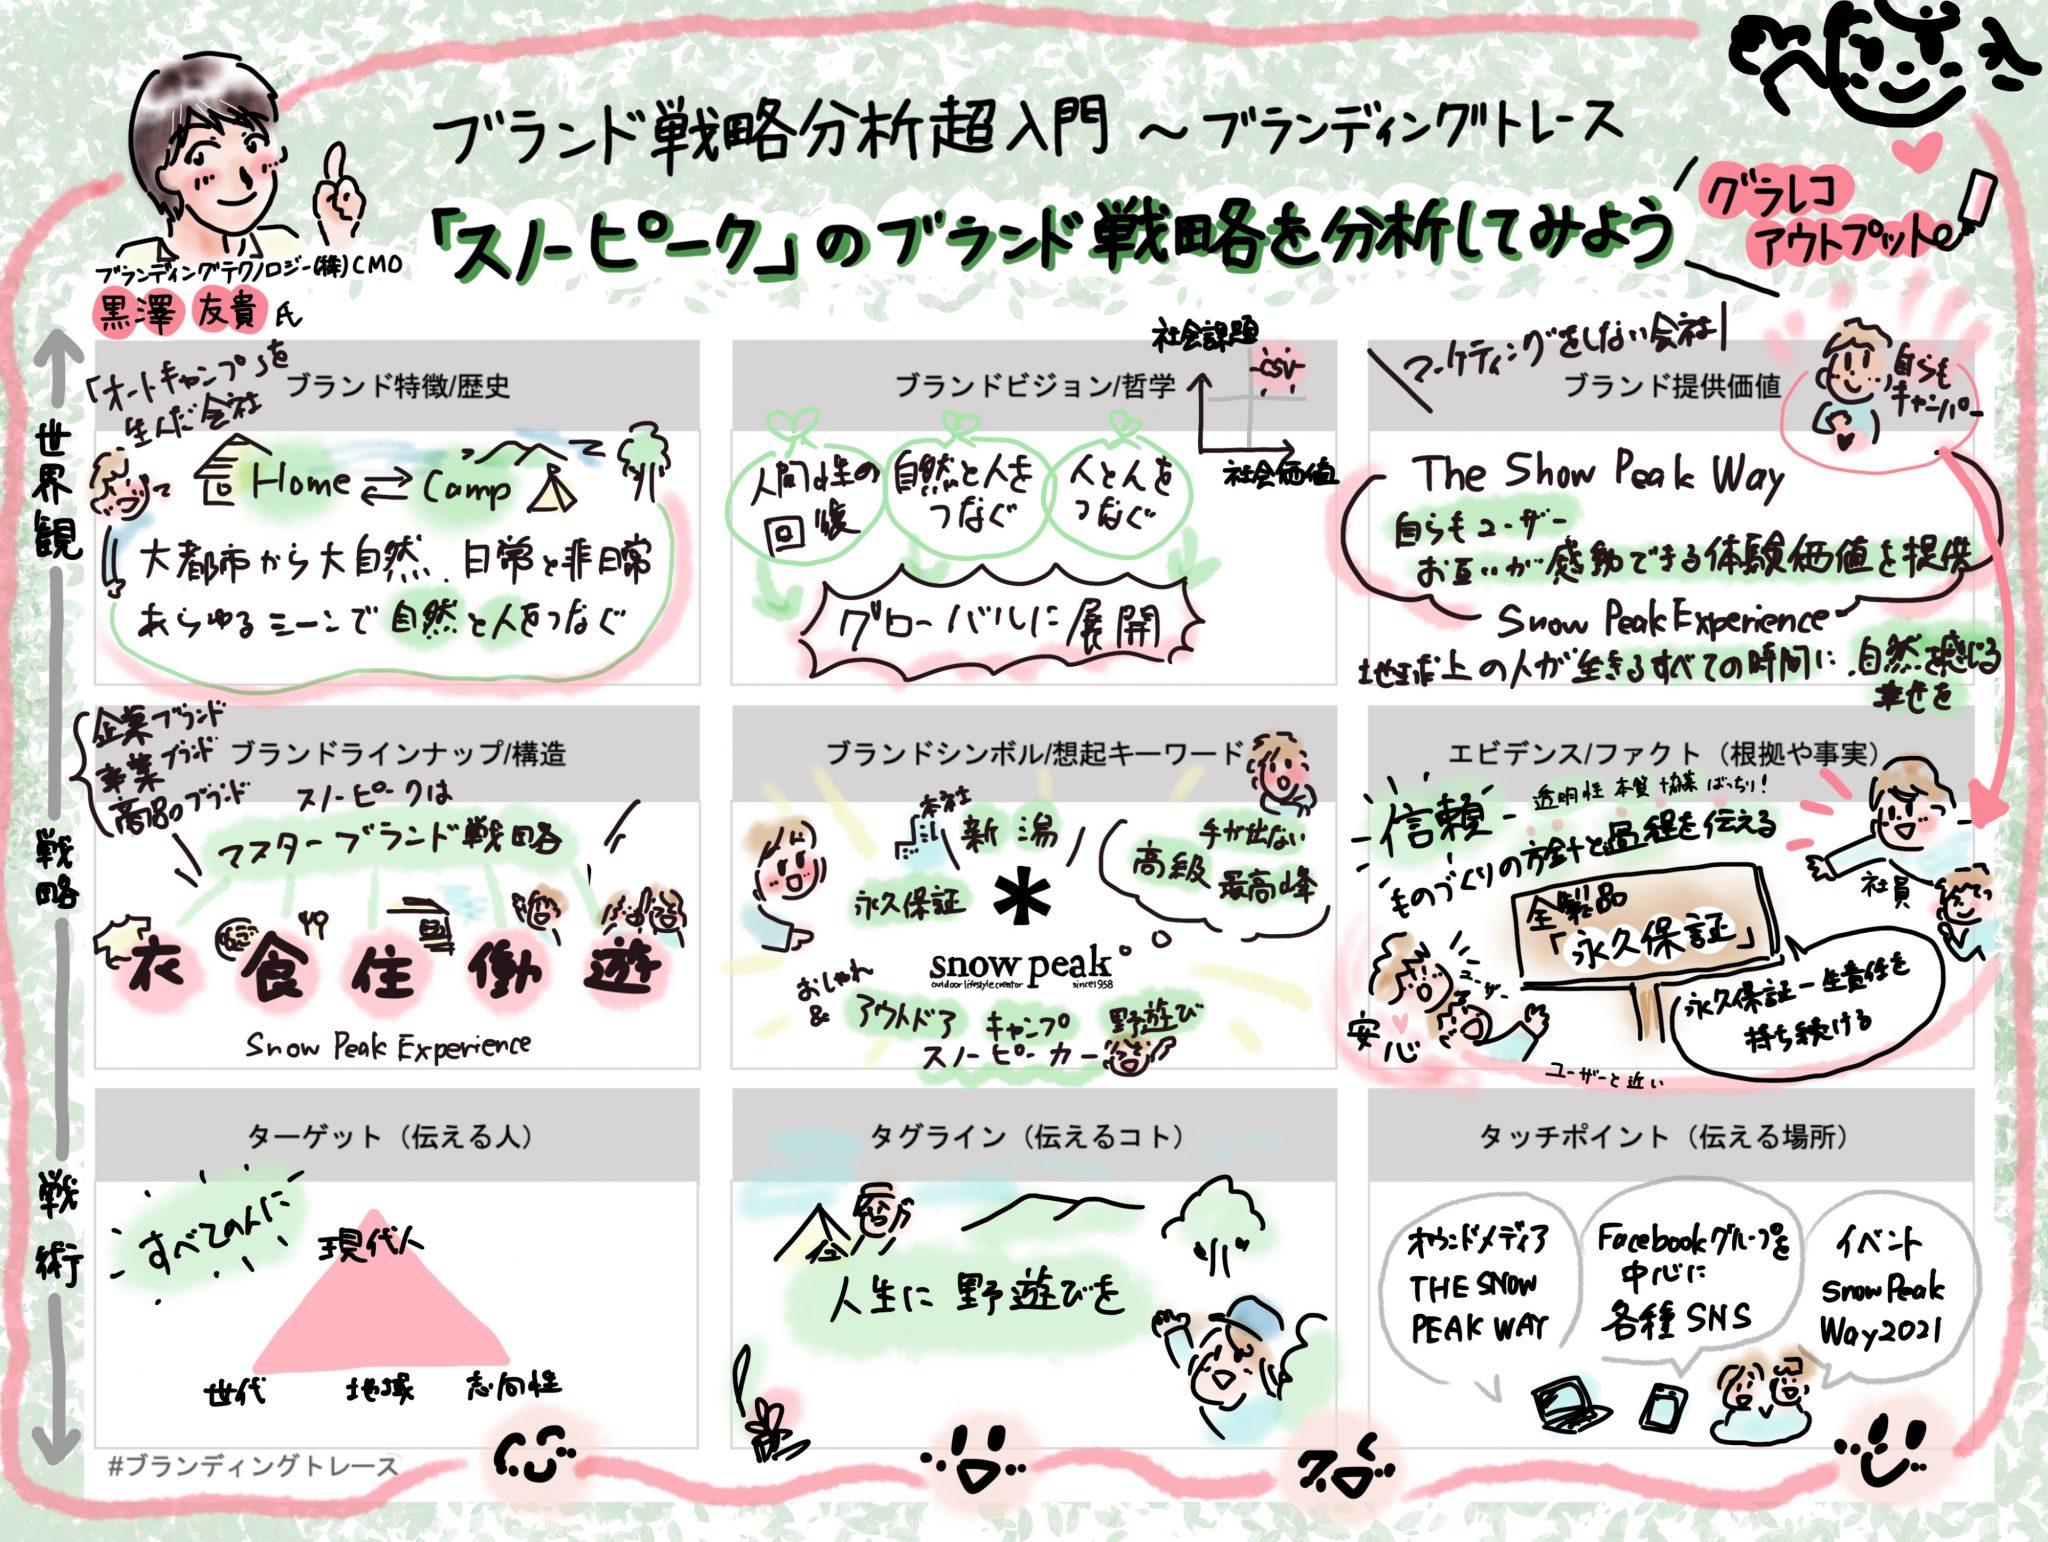 ブランド戦略分析超入門 ～ブランディングトレース
「スノーピーク」のブランド戦略を分析してみよう
グラレコ
アウトプット
ブランディングテクノロジー(株)CMO
黒澤 友貴 氏
世界観
戦略
戦術
「オートキャンプ」を
生んだ会社
ブランド特徴/歴史
Home ⇄ Camp
大都市から大自然、日常と非日常
あらゆるシーンで自然と人をつなぐ
ブランドビジョン/哲学
社会課題
CSV
社会価値
人間性の
回復
自然と人を
つなぐ
人と人を
つなぐ
グローバルに展開
マーケティングをしない会社
ブランド提供価値
自らも
キャンパー
The Snow Peak Way
自らもユーザー
お互いが感動できる体験価値を提供
Snow Peak Experience
地球上の人が生きるすべての時間に、自然を感じる
幸せを
企業ブランド
事業ブランド
商品のブランド
ブランドラインナップ/構造
スノーピークは
マスターブランド戦略
衣 食 住 働 遊
Snow Peak Experience
ブランドシンボル/想起キーワード
本社
新潟
永久保証
手が出ない
高級 最高峰
snow peak
outdoor lifestyle creator since1958
おしゃれ
& アウトドア キャンプ 野遊び
スノーピーカー
エビデンス/ファクト（根拠や事実）
信頼
透明性 本質 協業 ばっちり！
ものづくりの方針と過程を伝える
社員
全製品
「永久保証」
ユーザー
安心
永久保証＝生責任を
持ち続ける
ユーザーと近い
ターゲット（伝える人）
すべての人に
現代人
世代 地域 志向性
タグライン（伝えるコト）
人生に 野遊びを
タッチポイント（伝える場所）
オウンドメディア
THE SNOW
PEAK WAY
Facebookグループを
中心に
各種 SNS
イベント
Snow Peak
Way2021
#ブランディングトレース